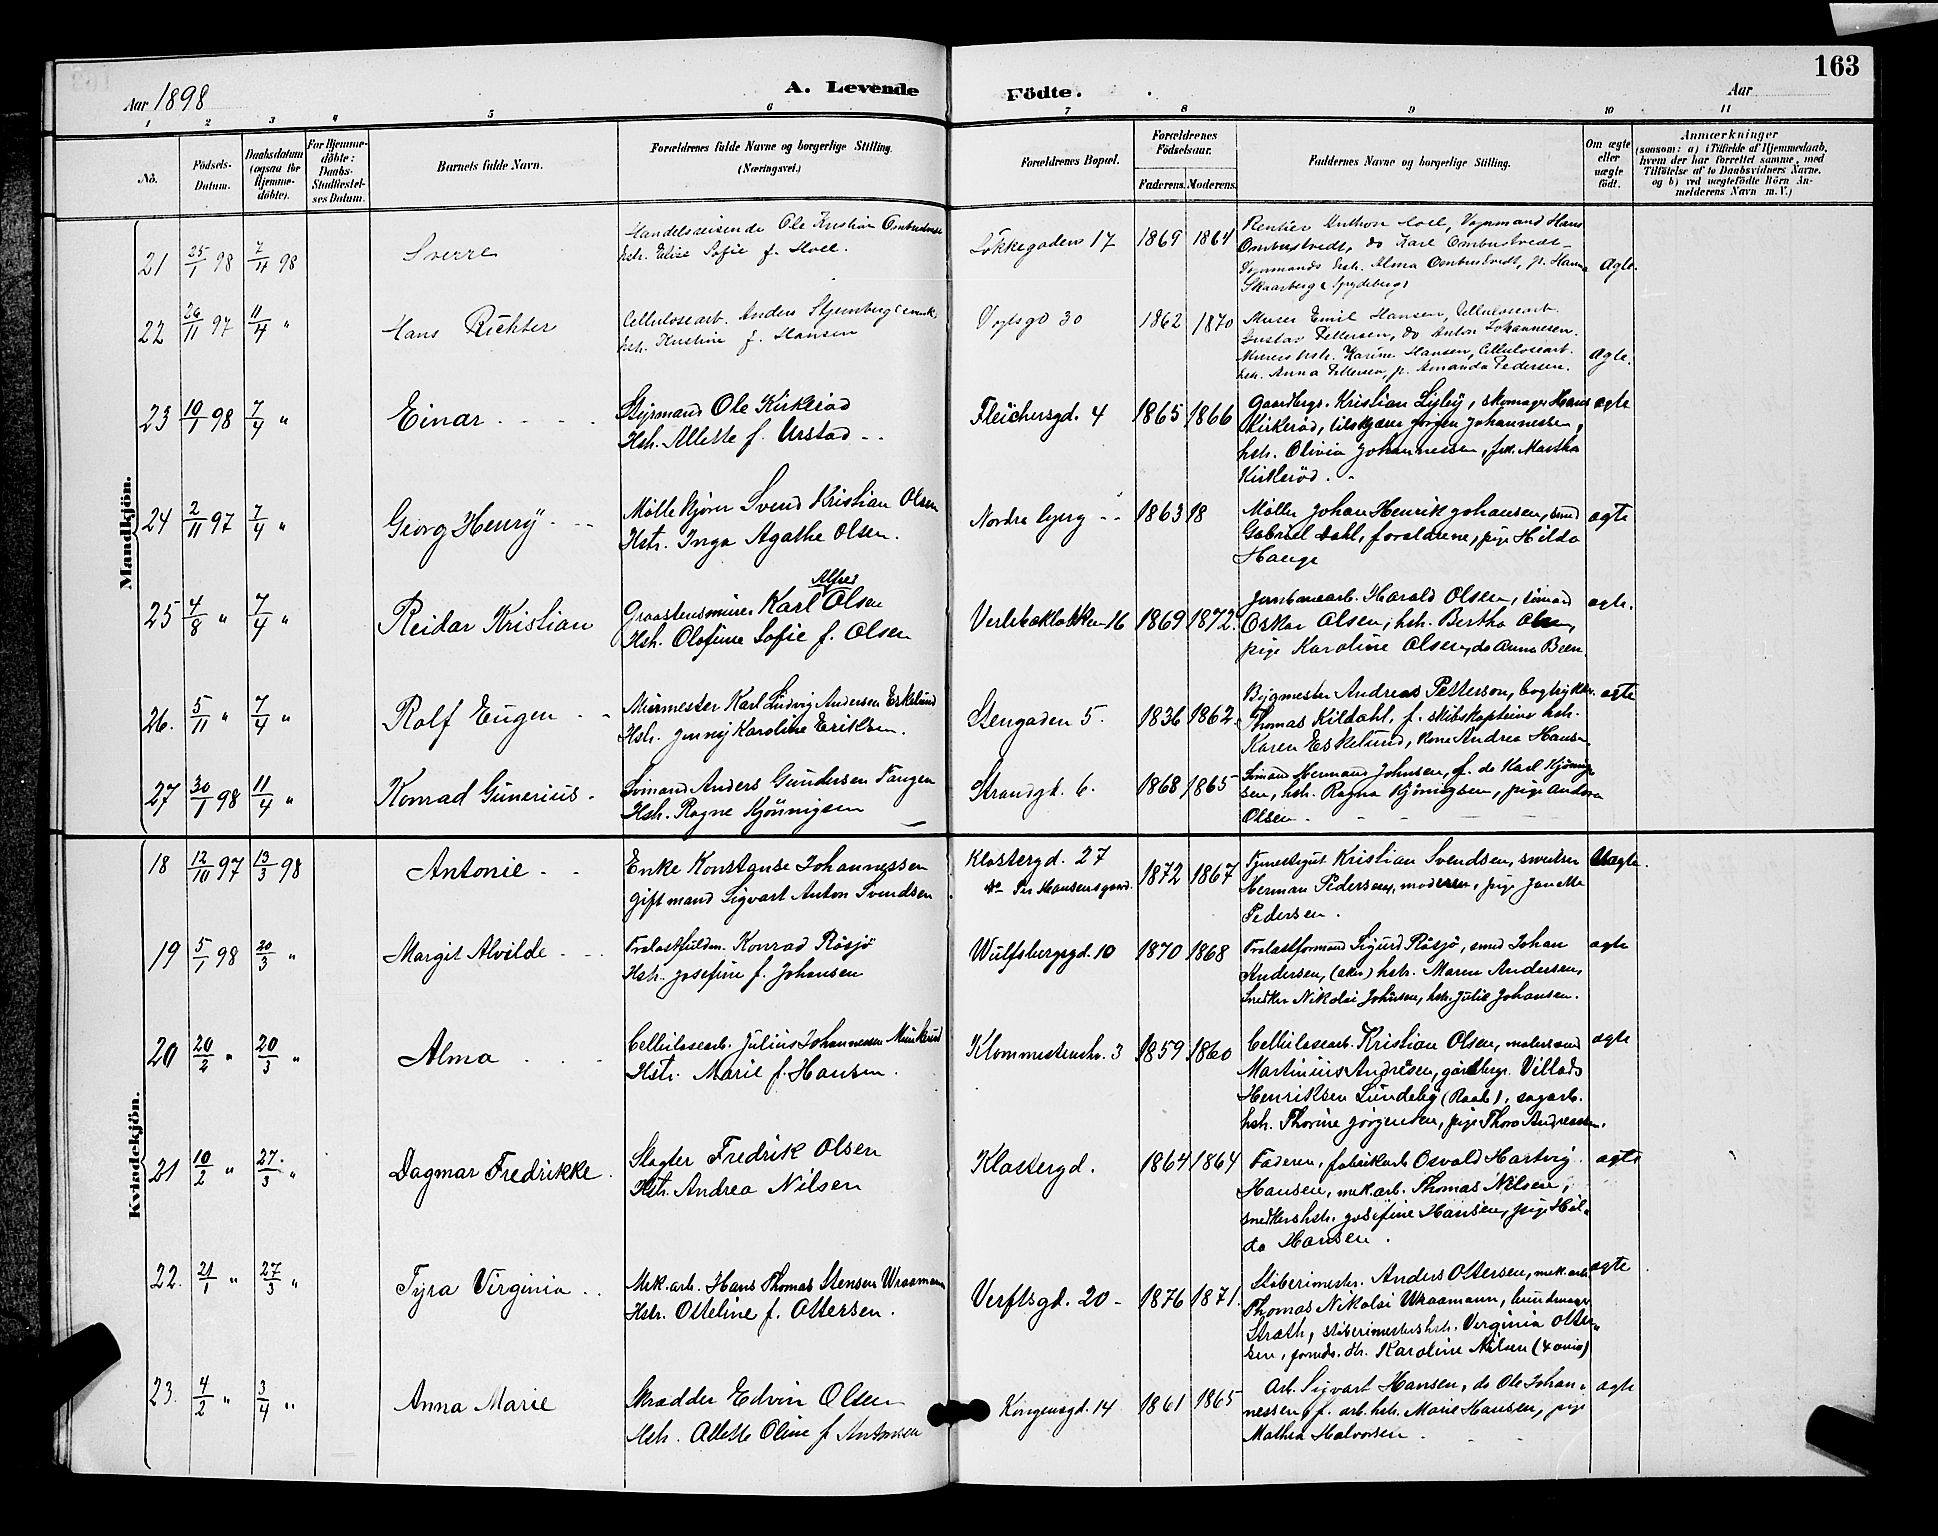 163
Aar 1898
A. Levende Födte.
Aar
1 2 3 4 5 6 7 8 9 10 11
No.
Födsels-Datum.
Daabsdatum (ogsaa for Hjemme-döbte).
For Hjemme-döbte: Daabs-Stadfæstel-ses Datum.
Barnets fulde Navn.
Forældrenes fulde Navne og borgerlige Stilling. (Næringsvei.)
Forældrenes Bopæl.
Forældrenes Födselsaar.
Faderens. Moderens.
Faddernes Navne og borgerlige Stilling.
Om ægte eller uægte födt.
Anmærkninger
(saasom: a) i Tilfælde af Hjemmedaab, hvem der har forrettet samme, med Tilföielse af to Daabsvidners Navne, og b) ved uægtefödte Börn Anmelderens Navn m. V.)
Mandkjön.
21 25/1 98 7/4 98 Sverre
Handelsreisende Ole Kristian
Hstr. Elise Sofie f. Moel.
Løkkegaden 17 1869 1864
Rentier Anthon Moel, Vognmand Hans
Ombustvedt, do Karl Ombustvedt
Vognmands hstr. Alma Ombustvedt, p. Hanna
Skaarberg
ægte.
22 26/11 97 11/4 " Hans Richter
Cellulosearb. Anders Stjernberg
hstr. Kristine f. Hansen
Vogtsgd 30 1862 1870
Murer Emil Hansen, Cellulosearb.
Gustav Pettersen, do Anton Johannesen.
Murers hstr. Karine Hansen, Cellulosearb.
hstr. Anna Pettersen, p. Amanda Pedersen.
ægte.
23 10/1 98 7/4 " Einar
Styrmand Ole Kirkerød
Hstr. Allette f. Urstad
Fleichersgd. 4 1865 1866
Gaardbrgr. Kristian Lisby, skomager Hans
Kirkerød, tilskjærer Jørgen Johannessen,
hstr. Olivia Johannessen, frk. Martha
Kirkerød.
ægte
24 2/11 97 7/4 " Georg Henry
Møllekjører Svend Kristian Olsen
Hstr. Inga Agathe Olsen.
Nordre bjerg 1863 18
Møller Johan Henrik Johansen, smed
Gabriel Dahl, forældrene, pige Hilda
Hauge
ægte
25 4/8 " 7/4 " Reidar Kristian
Graastensmurer Karl Alfred Olsen
Hstr. Olefine Sofie f. Olsen
Verlebakløkken 16 1869 1872.
Jernbanearb. Harald Olsen, sømand
Oskar Olsen, hstr. Bertha Olsen,
pige Karoline Olsen, do Anna Been.
ægte.
26. 5/11 " 7/4 " Rolf Eugen
Murmester Karl Ludvig Andersen Eskelund
Hstr. Jenny Karoline Eriksen.
Stengaden 5. 1836 1862.
Bygmester Andreas Petterson, bogtrykker
Thomas Kildahl, f. skibskapteins hstr.
Karen Eskelund, kone Andrea Hansen
ægte
27 30/1 98 11/4 " Konrad Gunerius
Sømand Anders Gundersen Tangen
Hstr. Ragne Kjønnigsen
Strandgd. 6. 1868 1865
Sømand Herman Johnsen, f. do Karl Kjønnig-
sen, hstr. Ragna Kjønigsen, pige Andora
Olsen
Kvindekjön.
18 12/10 97 13/3 98 Antonie
Enke Konstanse Johannessen
gift mand Sigvart Anton Svendsen
Klostergd. 27
do Per Hansensgaard. 1872 1867
Tjenestegut Kristian Svendsen, sveitser
Herman Pedersen, moderen, pige Janetta
Pedersen.
Uægte.
19 5/1 98 20/3 " Margit Alvilde
Konrad Røsjø
Hstr. Josefine f. Johansen
Wulfsbergsgd. 10 1870 1868
Sigurd Røsjø, smed Johan
Andersen, (Aker) hstr. Maren Andersen,
Snedker Nikolai Johnsen, hstr. Julie Johansen.
ægte
20 20/2 " 20/3 " Alma
Cellulosearb. Julius Johannessen Munkerud
Hstr. Marie f. Hansen.
Klommestenstr. 3 1859 1860
Cellulosearb. Kristian Olsen, matersmd
Martinius Andresen, gårdbrgr. Villads
Henriksen Lundeby (Raade), sagarb.
hstr. Thorine Jørgensen, pige Thora Andreassen.
ægte
21 10/2 " 27/3 " Dagmar Fredrikke.
Slagter Fredrik Olsen
Hstr. Andrea Nilsen
Klostergd. 1864 1864
Faderen, fabrikarb. Osvald Hartvig
Hansen, mek.arb. Thomas Nilsen,
snedkers hstr. Josefine Hansen, pige Hil-
da Hansen.
ægte
22. 21/1 " 27/3 " Tyra Virginia
Mek.arb. Hans Thomas Stensen Wraamann
Hstr. Otteline f. Ottersen.
Verftsgd. 20 1876 1871.
Støberimester. Anders Ottersen, mek.arb.
Thomas Nikolai Wraamann, buntmager
Strøth, støberimesters hstr. Virginia Otter-
sen, hstr. Karoline Nilsen
ægte
23. 4/2 " 3/4 " Anna Marie
Skrædder Edvin Olsen
Hstr. Allette Oline f Antonsen
Kongensgd. 14 1861 1865
Arb. Sigvart Hansen, do Ole Johan-
nessen, f. arb. hstr. Marie Hansen, pige
Mathea Halvorsen.
ægte